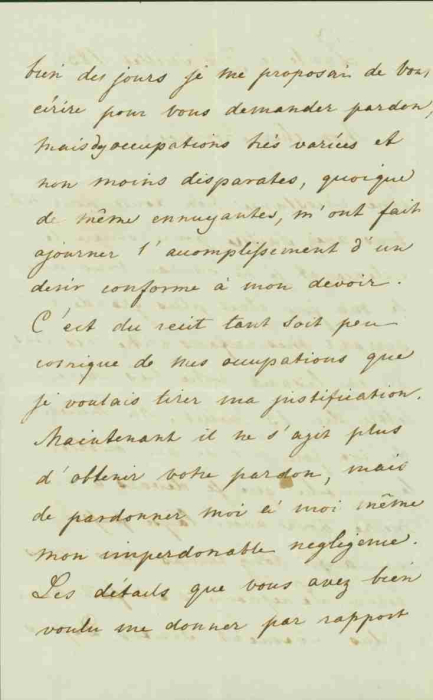 bien des jours je me proposai de vous
écrire pour vous demander pardon,
mais des occupations très variées et
non moins disparates, quoique
de même ennuyantes, m'ont fait
ajourner l'acomplissement d'un
desir conforme à mon devoir.
C'est du recit tant soit peu
comique de mes occupations que
je voulais tirer ma justification.
Maintenant il ne s'agit plus
d'obtenir votre pardon, mais
de pardonner moi à moi même
mon imperdonable negligence.
Les détails que vous avez bien
voulu me donner par rapport